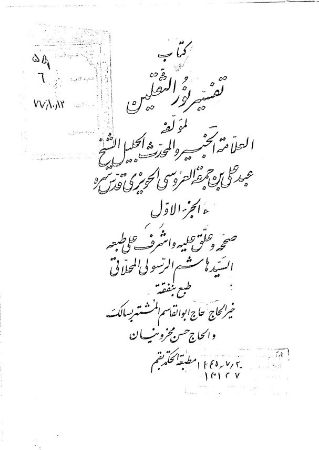 كتاب
تفسير نور الثقلين
لمؤلفه
العلامة الخبير والمحدث الجليل الشيخ
عبد علي بن جمعة العروسي الحويزي قدس سره
الجزء الاول
صححه وعلق عليه واشرف على طبعه
السيد هاشم الرسولي المحلاتي
طبع بنفقة
خير الحاج حاج ابوالقاسم المشتهر بسالك
والحاج حسن
مطبعة الحكمة بقم